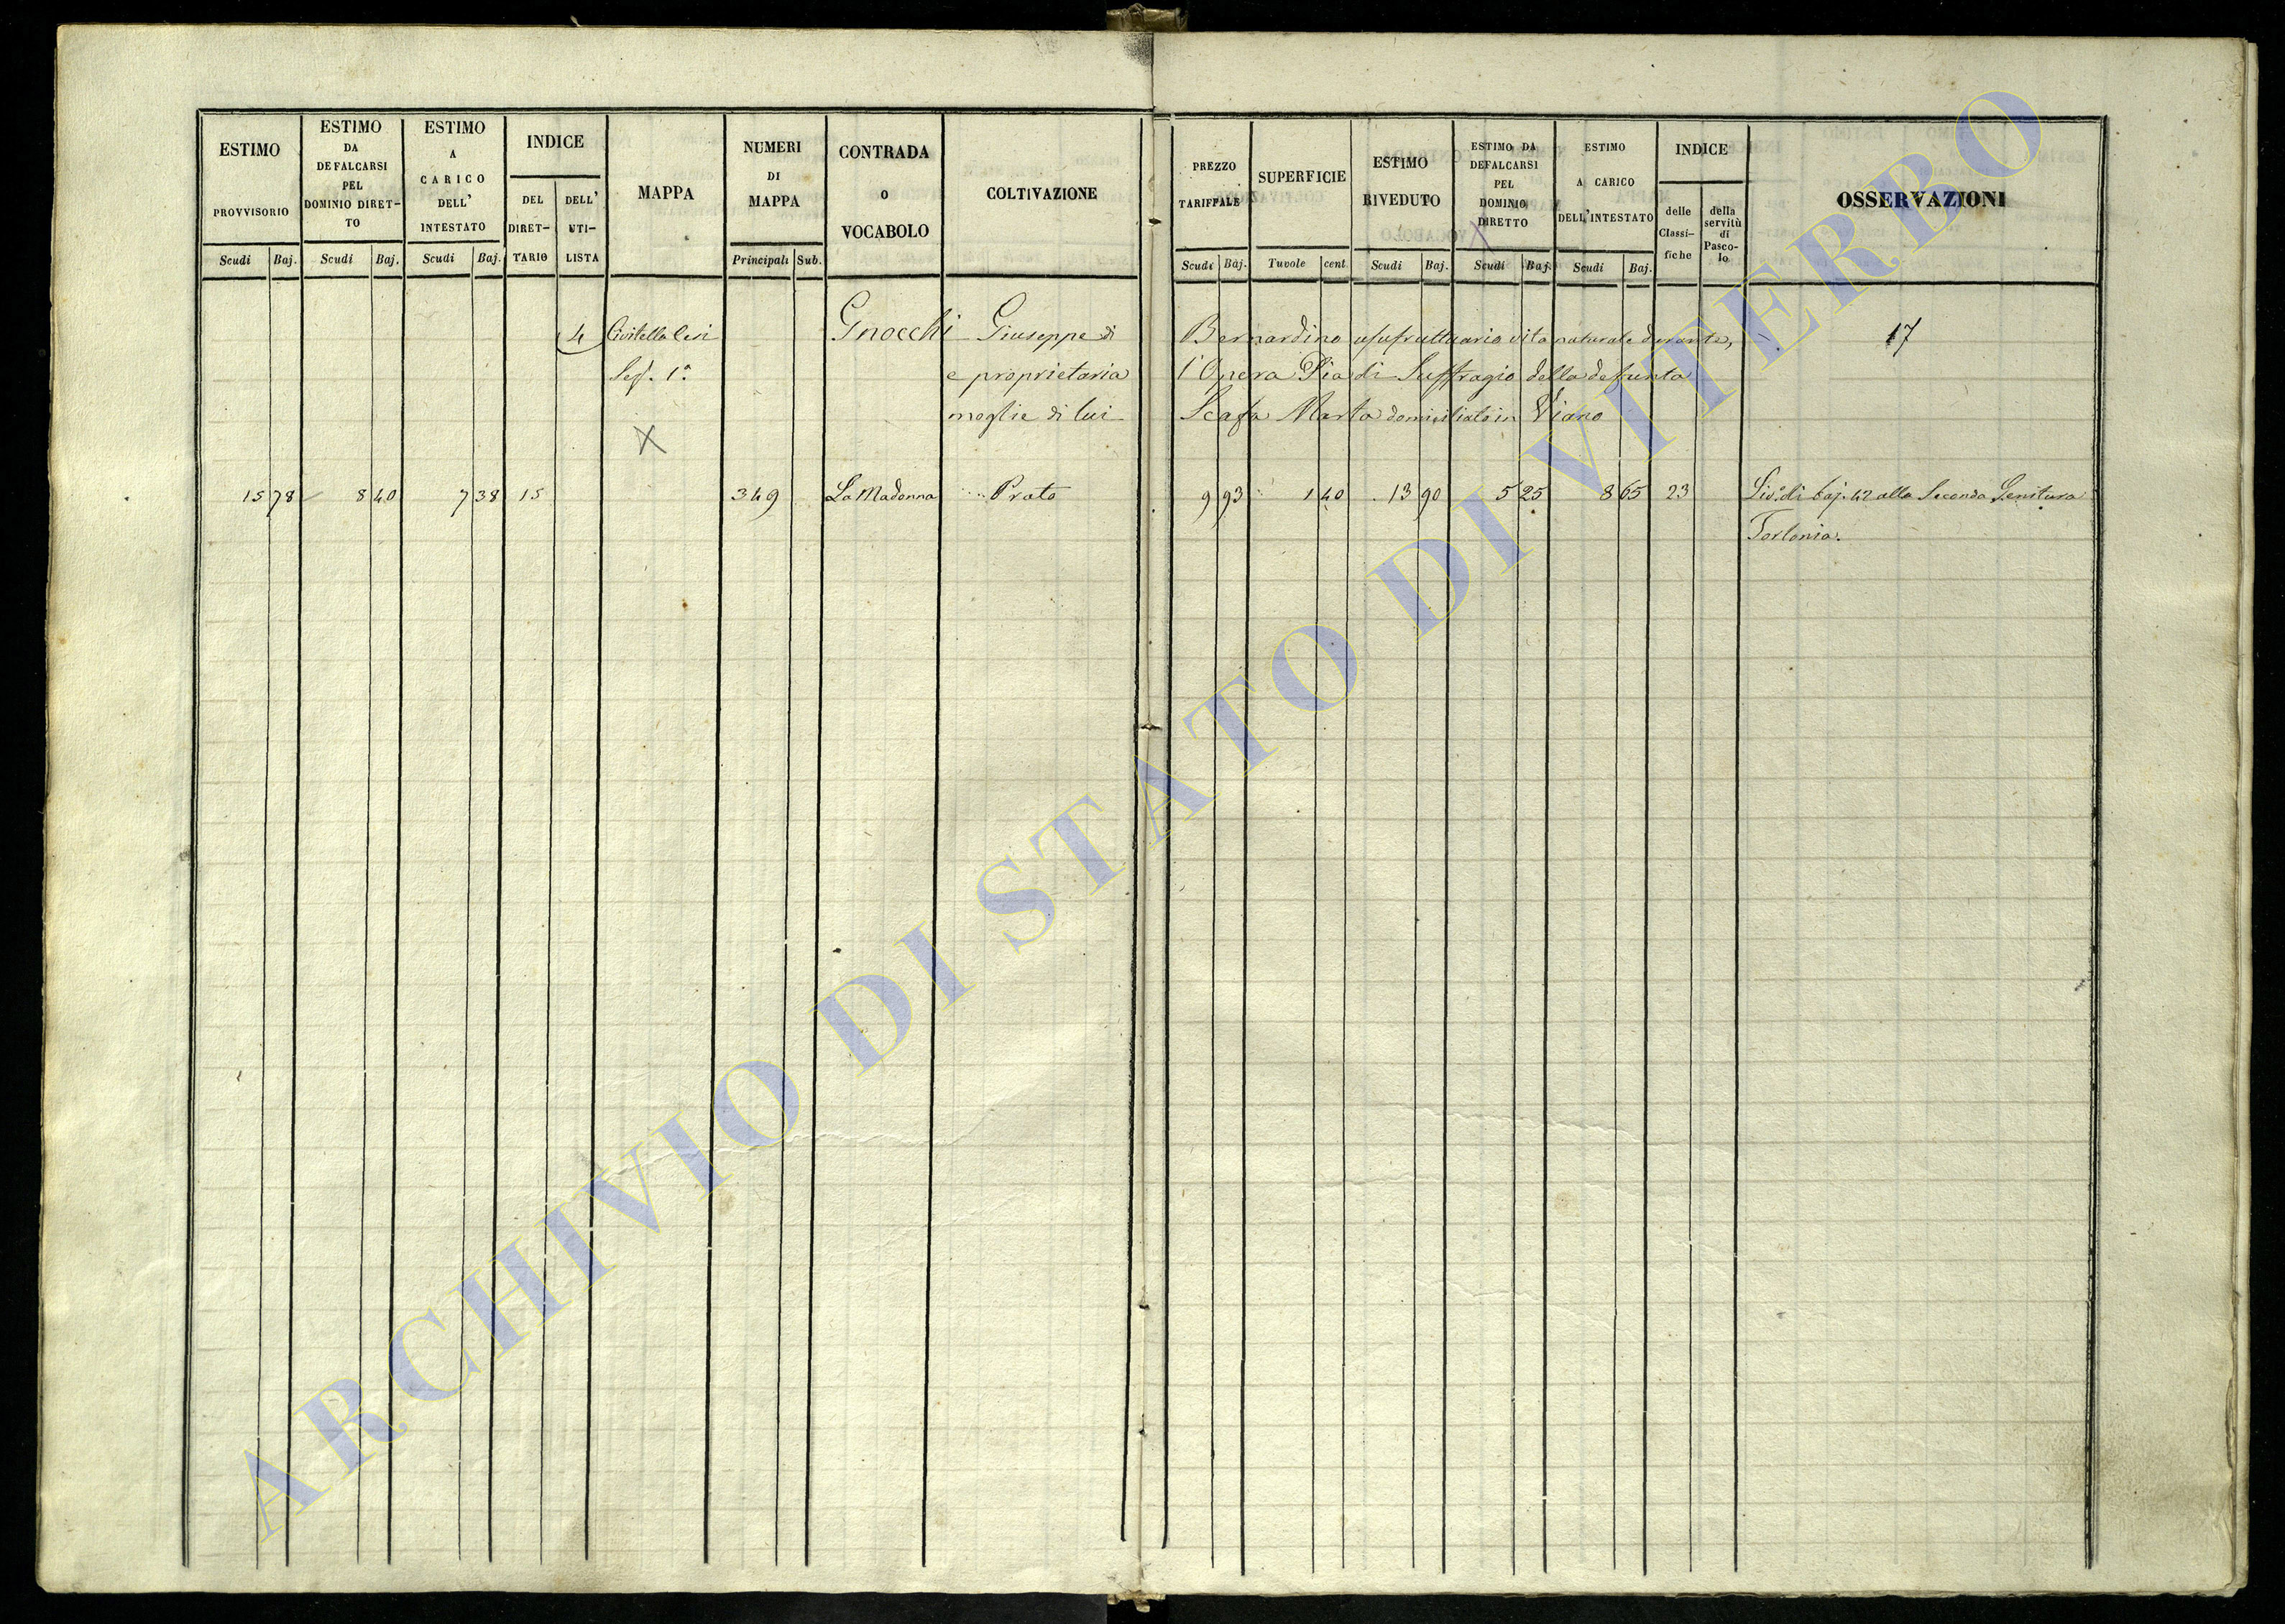 ESTIMO PROVVISORIO Scudi Baj.
ESTIMO DA DEFALCARSI PEL DOMINIO DIRET-TO Scudi Baj.
ESTIMO A CARICO DELL' INTESTATO Scudi Baj.
INDICE DEL DIRET-TARIO DELL' UTI-LISTA
MAPPA
NUMERI DI MAPPA Principali Sub.
CONTRADA O VOCABOLO
COLTIVAZIONE
PREZZO TARIFFALE Scudi Baj.
SUPERFICIE Tavole cent
ESTIMO RIVEDUTO Scudi Baj.
ESTIMO DA DEFALCARSI PEL DOMINIO DIRETTO Scudi Baj.
ESTIMO A CARICO DELL'INTESTATO Scudi Baj.
INDICE delle Classi-fiche della servitù di Pasco-lo
OSSERVAZIONI
4 Civitella Cesi Gnocchi Giuseppe di Bernardino usufruttuario vita naturale durante, 17
Sez. 1ª e proprietaria l'Opera Pia di Suffragio della defunta
moglie di lui Scafa Marta domiciliato in Viano
X
15 78 8 40 7 38 15 349 La Madonna Prato 9 93 1 40 13 90 5 25 8 65 23 Liv. di baj. 42 alla Seconda Genitura
Torlonia.
ARCHIVIO DI STATO DI VITERBO